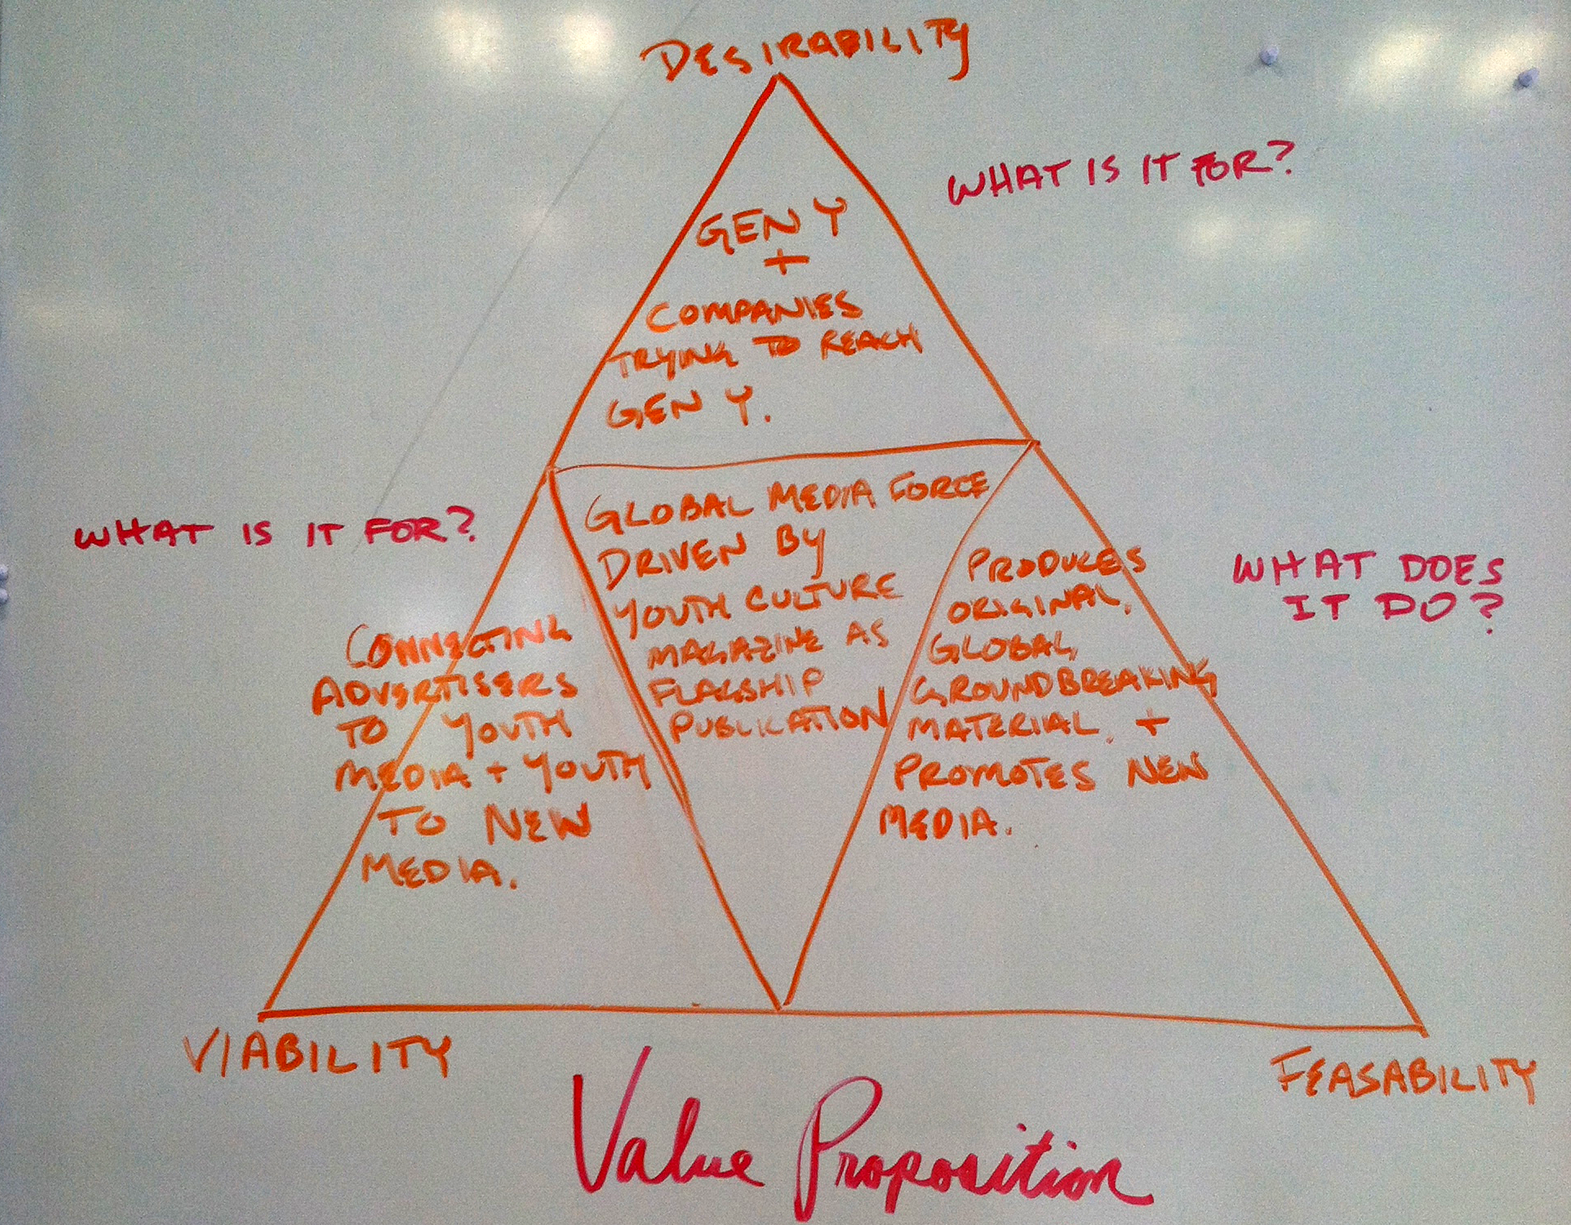 DESIRABILITY
WHAT IS IT FOR?
GEN Y
+
COMPANIES
TRYING TO REACH
GEN Y.
WHAT IS IT FOR?
GLOBAL MEDIA FORCE
DRIVEN BY
YOUTH CULTURE
MAGAZINE AS
FLAGSHIP
PUBLICATION
WHAT DOES
IT DO?
CONNECTING
ADVERTISERS
TO YOUTH
MEDIA + YOUTH
TO NEW
MEDIA.
PRODUCES
ORIGINAL,
GLOBAL,
GROUNDBREAKING
MATERIAL, +
PROMOTES NEW
MEDIA.
VIABILITY
FEASABILITY
Value Proposition